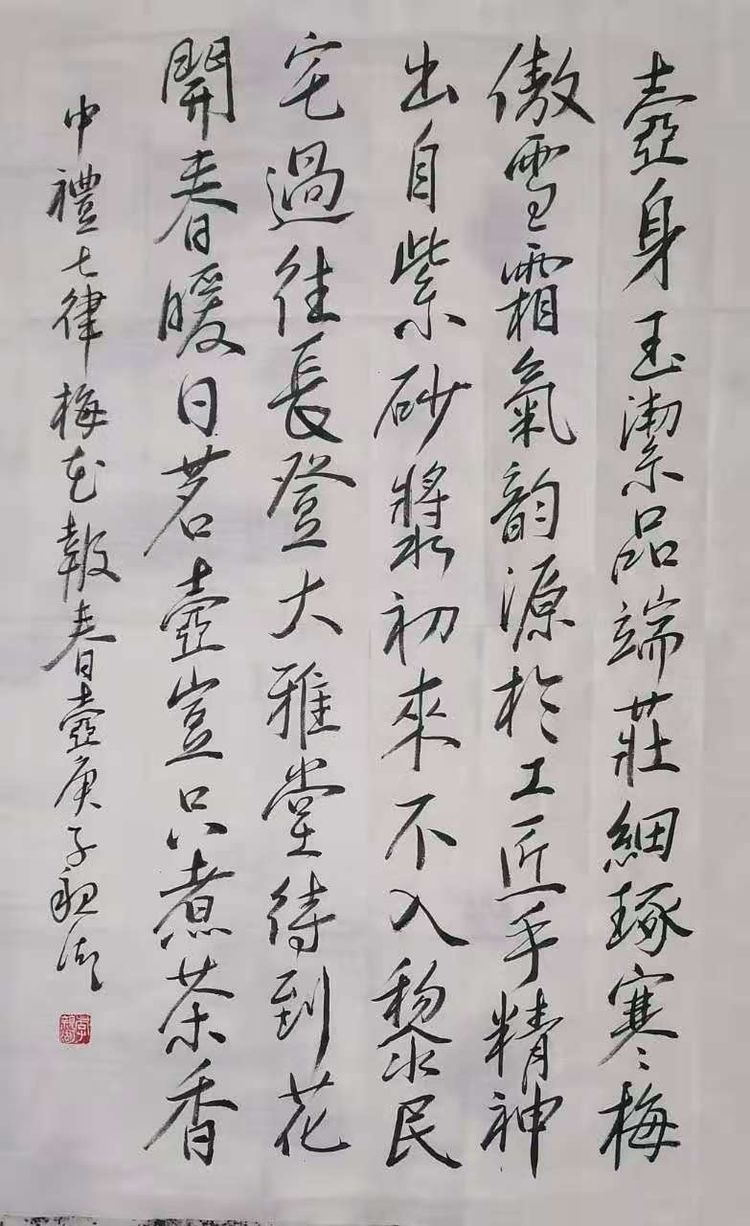 壺身玉潔品端莊細琢寒梅
傲雪霜氣韵源於工匠手精神
出自紫砂漿初來不入黎民
宅過往長登大雅堂待到花
開春暖日茗壺豈只煮茶香
申禮七律梅花報春壺庚子